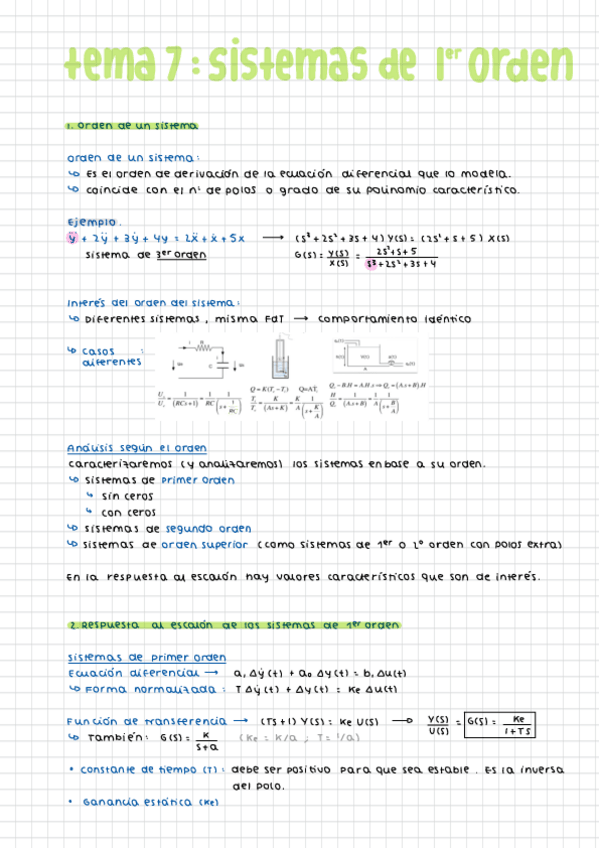 tema 7: sistemas de 1er orden
1. orden de un sistema
orden de un sistema:
↳ Es el orden de derivación de la ecuación diferencial que lo modela.
↳ coincide con el nº de polos o grado de su polinomio característico.
Ejemplo.
y⃛ + 2ÿ + 3ẏ + 4y = 2ẍ + ẋ + 5x → (s³ + 2s² + 3s + 4) Y(s) = (2s² + s + 5) X(s)
sistema de 3er orden G(s) = Y(s)/X(s) = (2s² + s + 5)/(s³ + 2s² + 3s + 4)
Interés del orden del sistema:
↳ Diferentes sistemas, misma FdT → comportamiento idéntico
↳ casos diferentes:
Q = K(Tᵢ - Tᵣ)
Análisis según el orden
caracterizaremos (y analizaremos) los sistemas en base a su orden.
↳ sistemas de primer orden
↳ sin ceros
↳ con ceros
↳ sistemas de segundo orden
↳ sistemas de orden superior (como sistemas de 1er o 2º orden con polos extra)
En la respuesta al escalón hay valores característicos que son de interés.
2. Respuesta al escalón de los sistemas de 1er orden
sistemas de primer orden
Ecuación diferencial → a₁ Δẏ(t) + a₀ Δy(t) = b₁ Δu(t)
↳ Forma normalizada: T Δẏ(t) + Δy(t) = Ke Δu(t)
Función de transferencia → (Ts+1) Y(s) = Ke U(s) → Y(s)/U(s) = G(s) = Ke/(1+Ts)
↳ También: G(s) = K/(s+a) (Ke = K/a ; T = 1/a)
• constante de tiempo (T): debe ser positivo para que sea estable. Es la inversa
del polo.
• Ganancia estática (Ke)